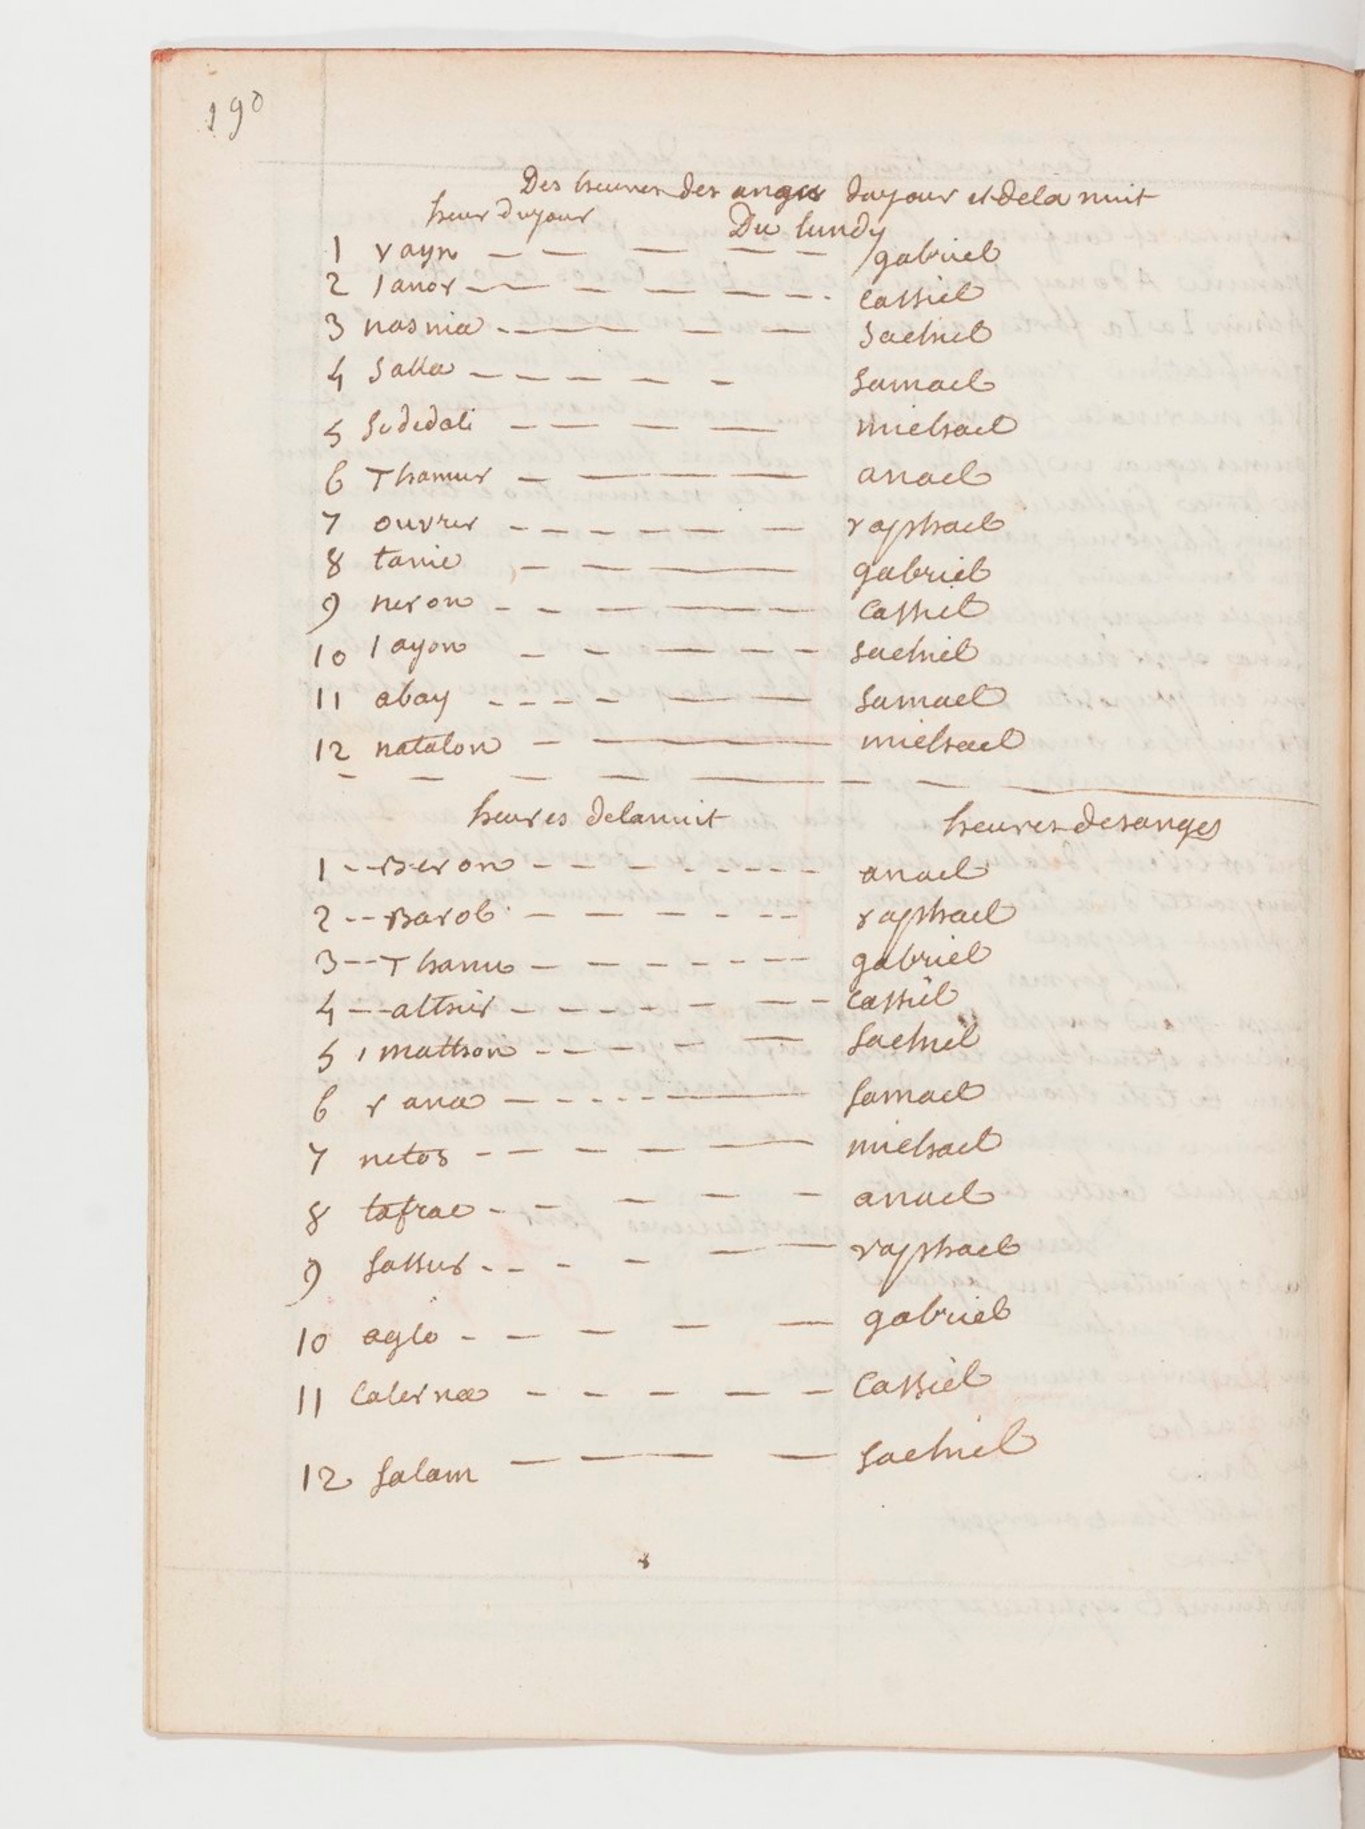 190
Des heures des anges dujour et dela nuit
heur dujour Du lundy
1 rayn gabriel
2 Janor Cassiel
3 nasnia Sachiel
4 Salla Samael
5 Sededali michael
6 Thamur anael
7 ouvrer raphael
8 tanie gabriel
9 neron Cassiel
10 Jayon Sachiel
11 abay Samael
12 natalon michael
heures delanuit heures desanges
1 --Beron anael
2 --Barol raphael
3 --Thanu gabriel
4 --athir Cassiel
5 mathon Sachiel
6 rana Samael
7 netos michael
8 tafrac anael
9 Sassur raphael
10 aglo gabriel
11 Calerna Cassiel
12 Salam Sachiel